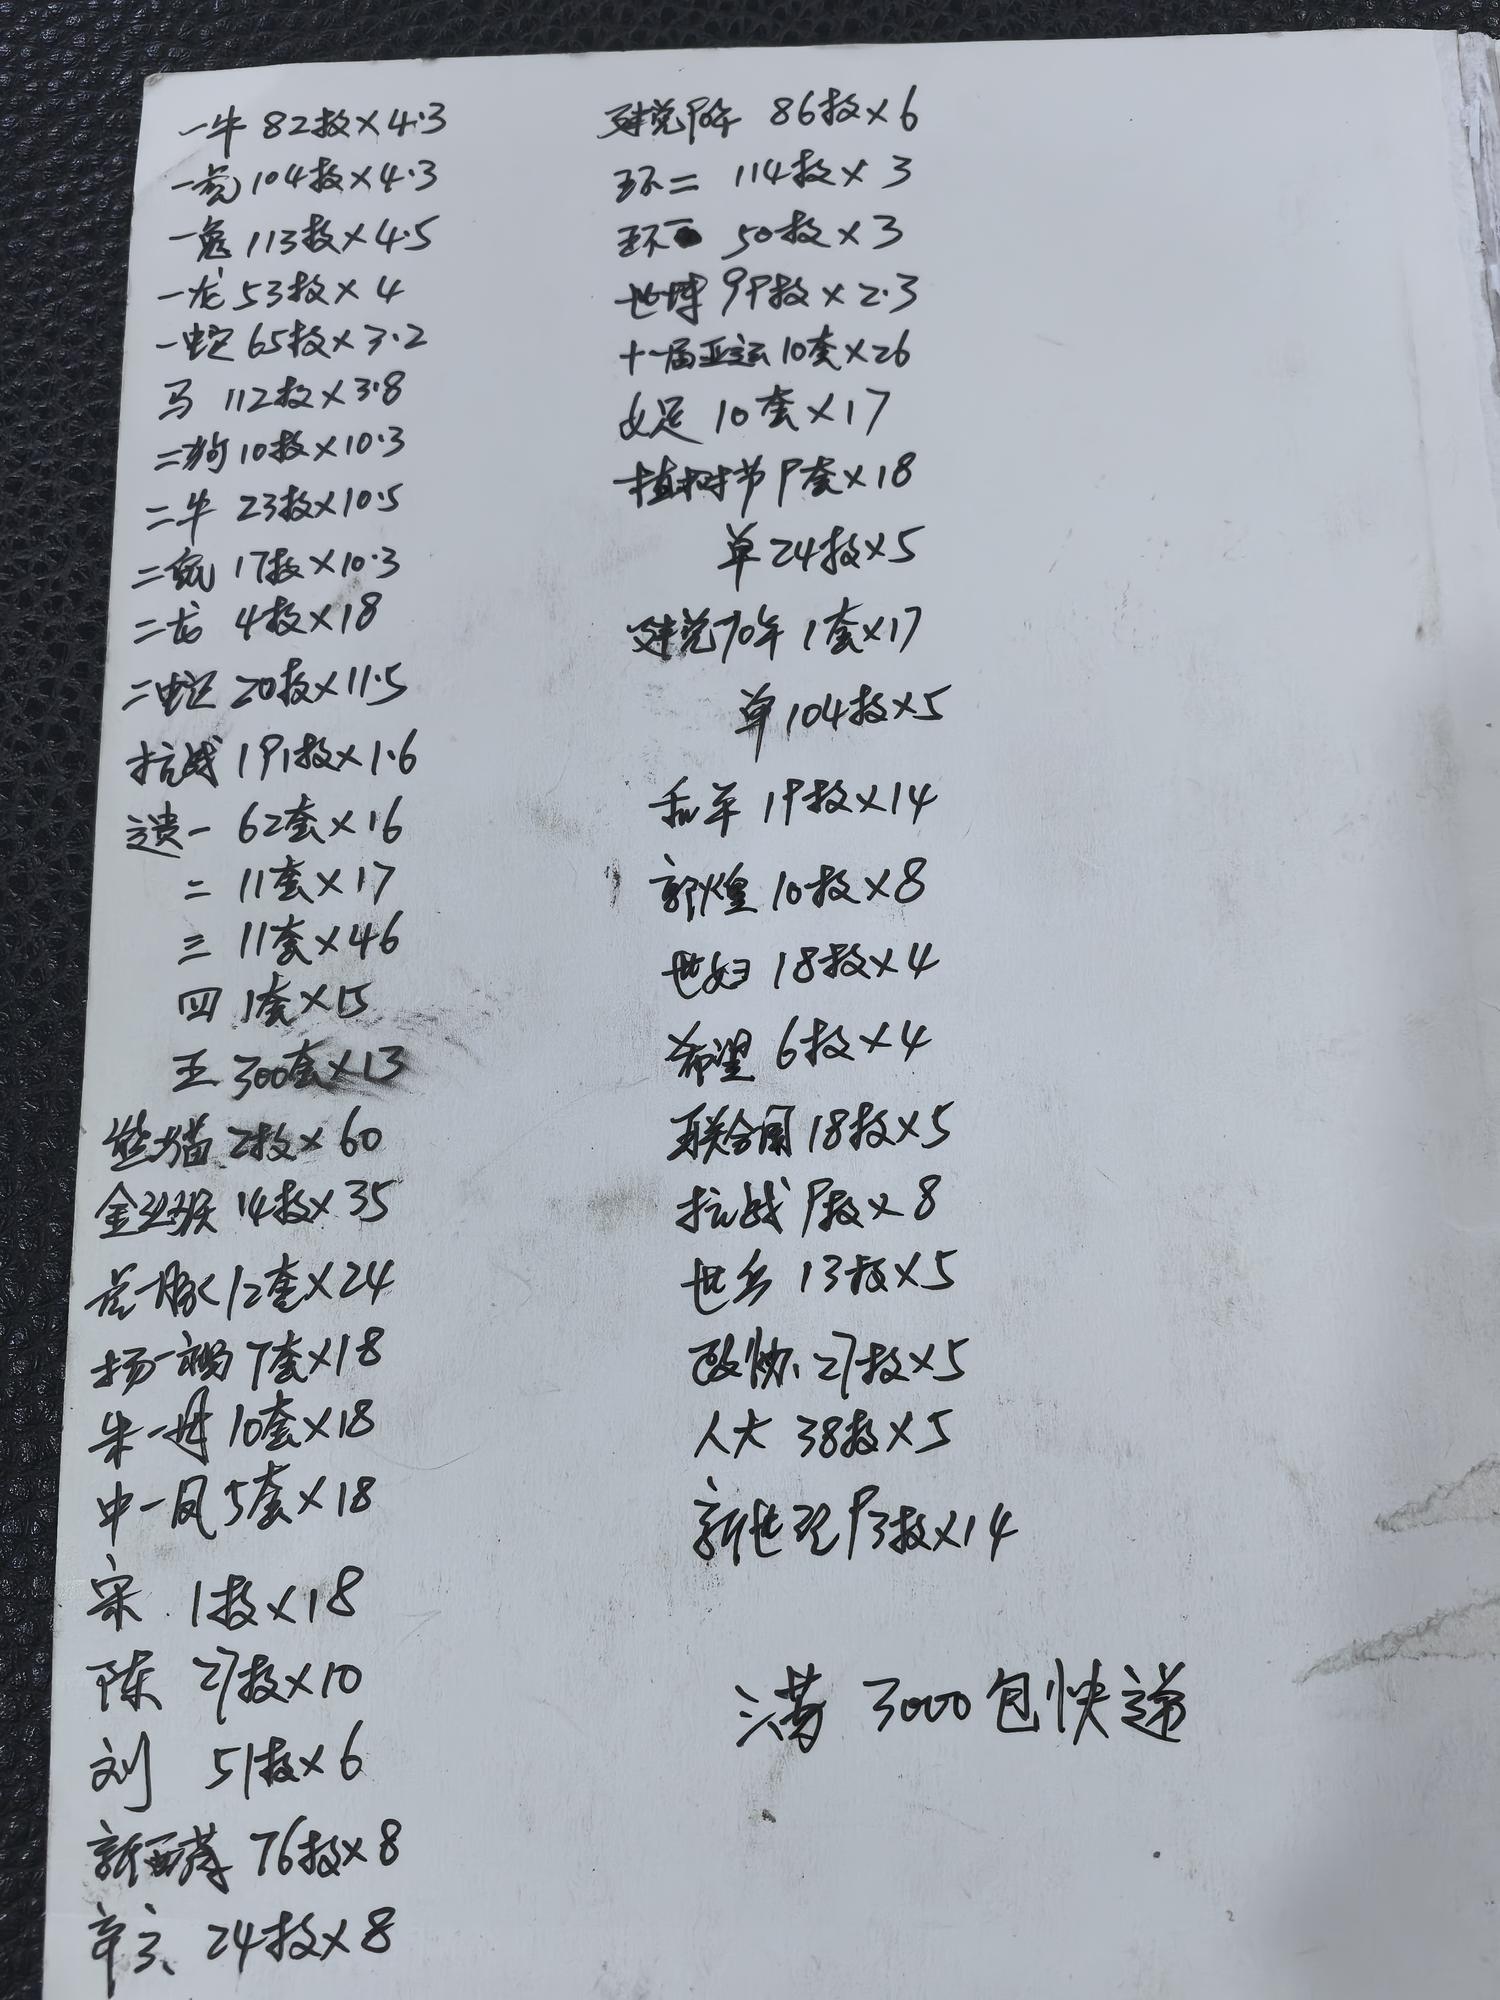 一牛 82枚×4.3
一虎 104枚×4.3
一兔 113枚×4.5
一龙 53枚×4
一蛇 65枚×3.2
马 112枚×3.8
二狗 10枚×10.3
二牛 23枚×10.5
二兔 17枚×10.3
二龙 4枚×18
二蛇 20枚×11.5
抗战 191枚×1.6
遗一 62套×16
二 11套×17
三 11套×46
四 1套×15
五 300套×13
熊猫 2枚×60
金丝猴 14枚×35
兰一豚 12套×24
扬一褐 7套×18
朱一丹 10套×18
中一凤 5套×18
宋 1枚×18
陈 27枚×10
刘 51枚×6
新西藏 76枚×8
辛亥 24枚×8
建党90年 86枚×6
环二 114枚×3
环一 50枚×3
世博 99枚×2.3
十一届亚运 10套×26
女足 10套×17
植树节 9套×18
单 24枚×5
建党70年 1套×17
单 104枚×5
和平 19枚×14
敦煌 10枚×8
世妇 18枚×4
希望 6枚×4
联合国 18枚×5
抗战 9枚×8
世乒 13枚×5
政协 27枚×5
人大 38枚×5
新世纪 93枚×14
满 3000包快递